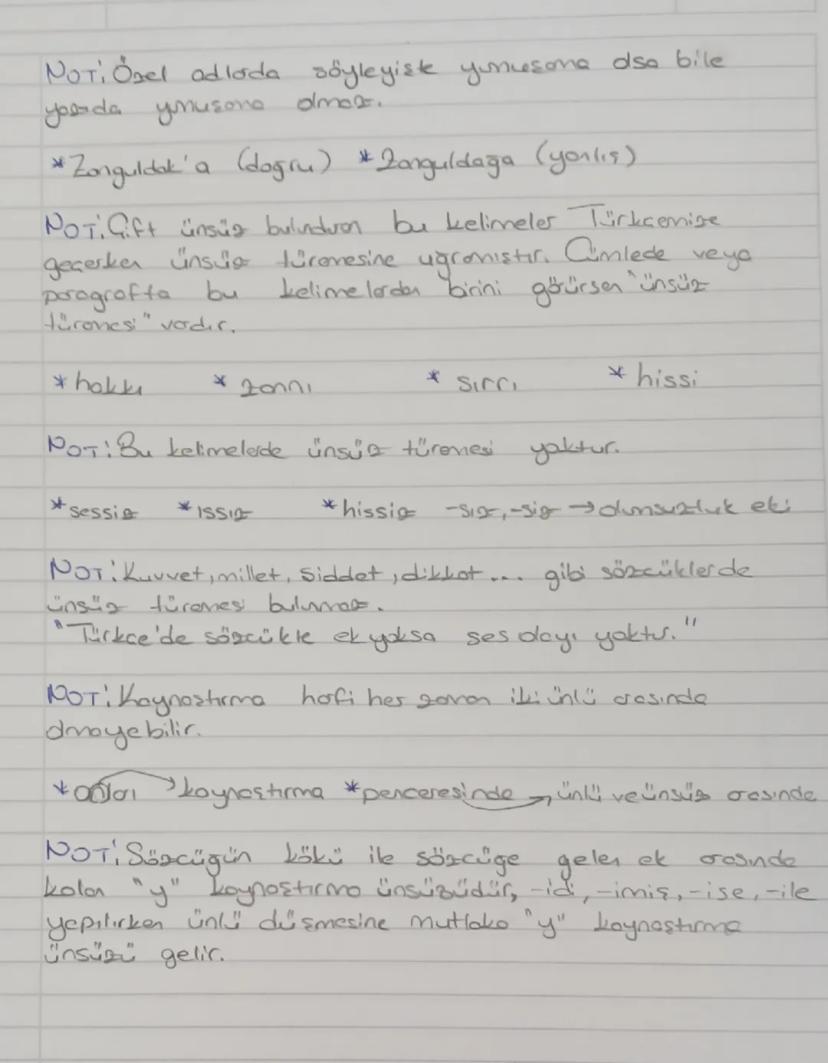 NOT: Özel adlarda söyleyişte yumuşama olsa bile
yazıda yumuşama olmaz.
*Zonguldak'a (doğru) *Zonguldağa (yanlış)
NOT: Çift ünsüz bulunduran bu kelimeler Türkçemize
geçerken ünsüz türemesine uğramıştır. Cümlede veya
paragrafta bu kelimelerden birini görürsen "ünsüz
türemesi" vardır.
*hakkı *zannı *sırrı *hissi
NOT: Bu kelimelerde ünsüz türemesi yoktur.
*sessiz *ıssız *hissiz -sız,-siz → olumsuzluk eki
NOT: Kuvvet, millet, şiddet, dikkat... gibi sözcüklerde
ünsüz türemesi bulunmaz.
"Türkçe'de sözcükte ek yoksa ses olayı yoktur."
NOT: Kaynaştırma harfi her zaman iki ünlü arasında
olmayabilir.
* → kaynaştırma *penceresinde → ünlü ve ünsüz arasında
NOT: Sözcüğün kökü ile sözcüğe gelen ek arasında
kalan "y" kaynaştırma ünsüzüdür, -idi, -imiş, -ise, -ile
yapılırken ünlü düşmesine mutlaka "y" kaynaştırma
ünsüzü gelir.